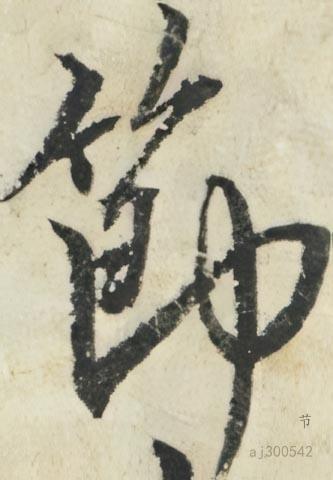 節
节
aj300542